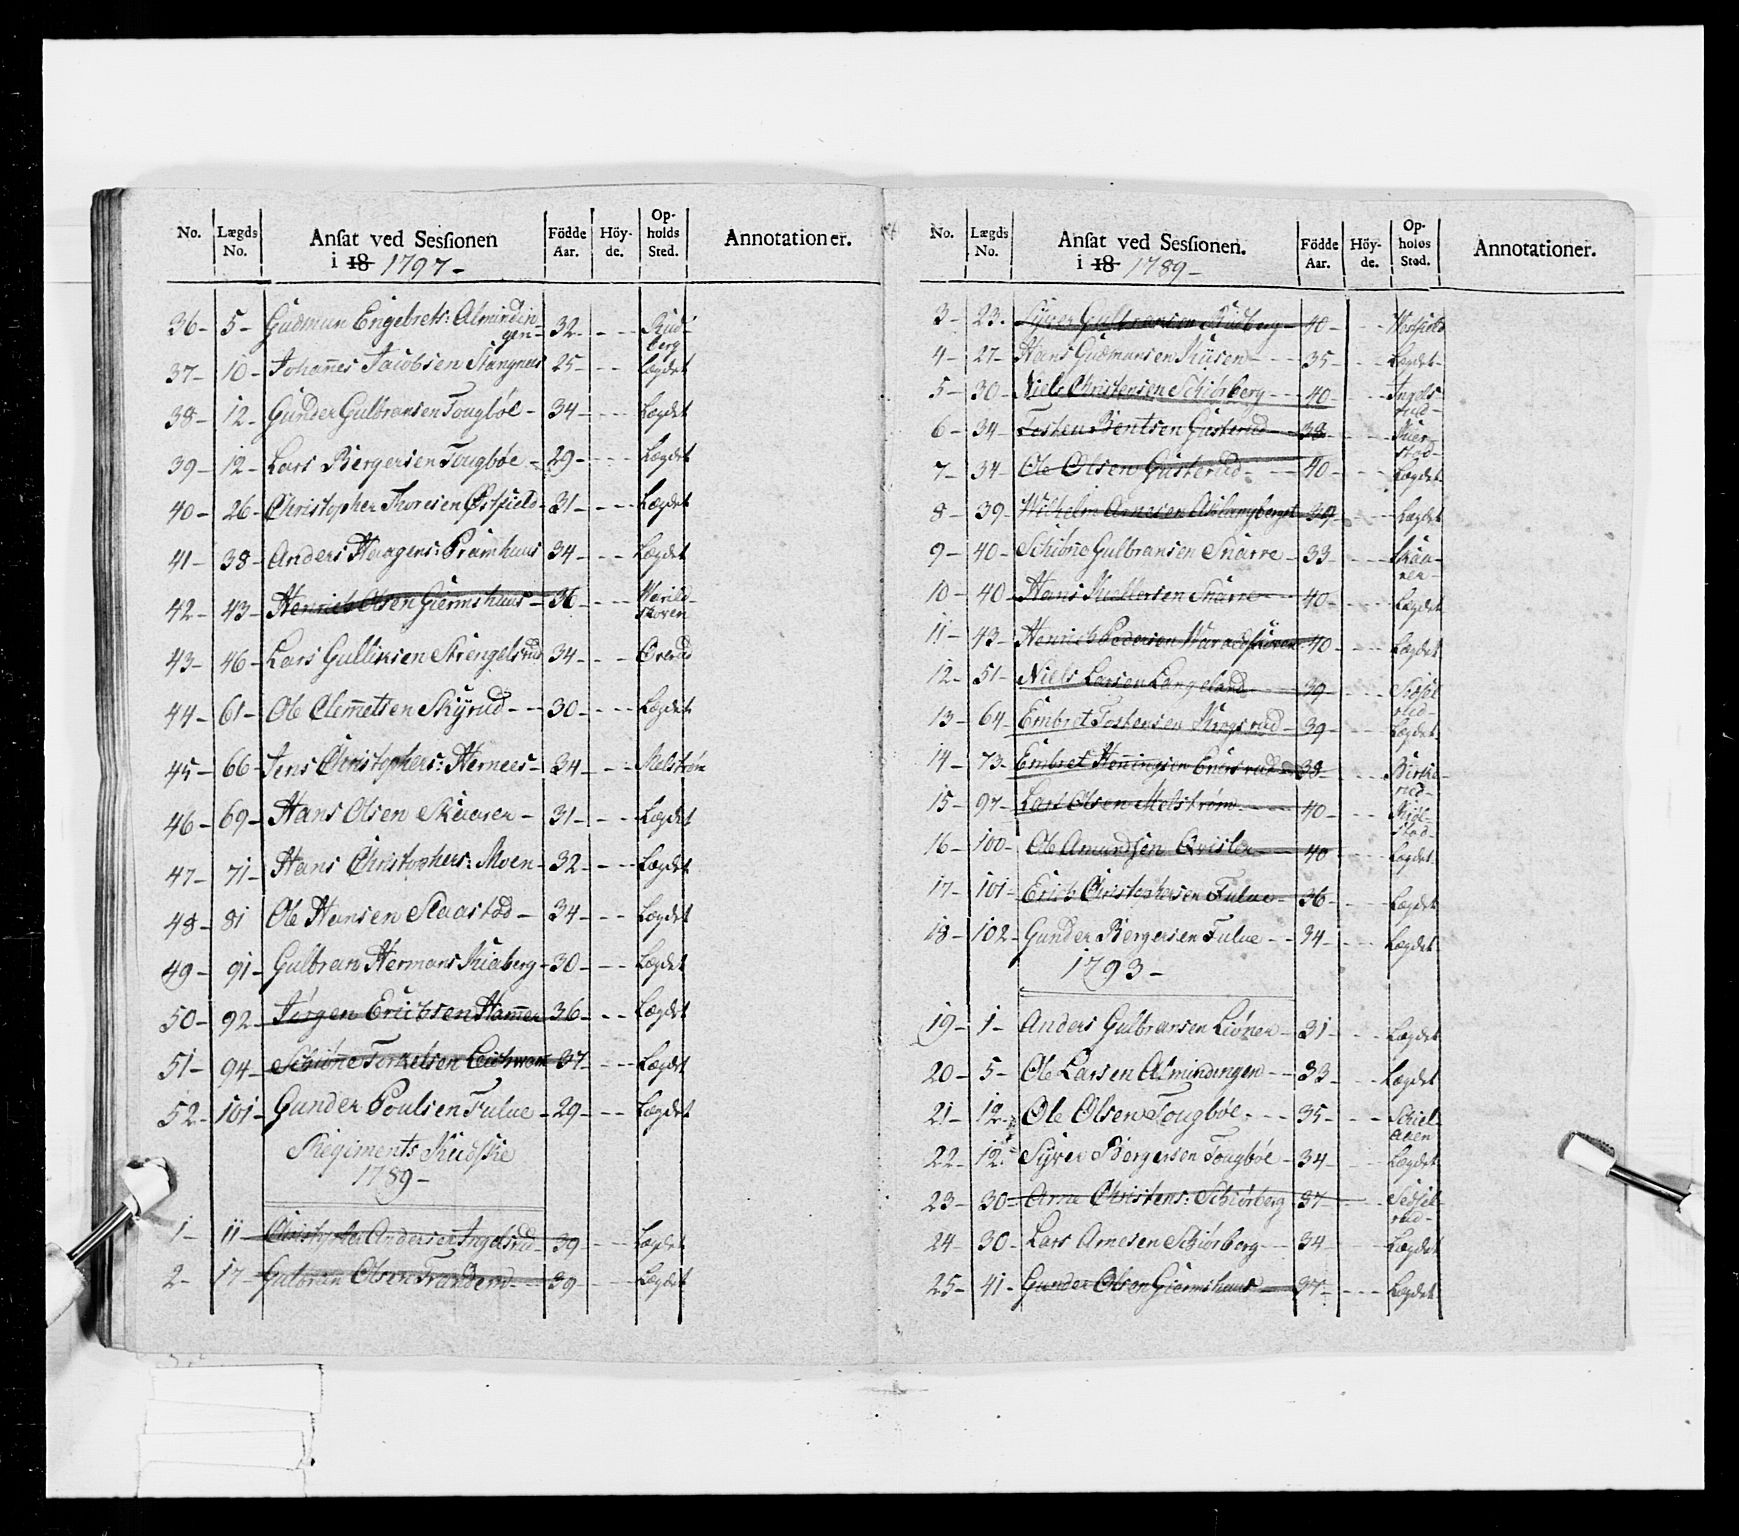 No. Lægds No. Ansat ved Sessionen i 18 1797 - Födde Aar. Höy-de. Op-holds Sted. Annotationer.
36 - 5 - Gudmun Engebrets: Almindin
gen - 32 - - - Rud
berg
37 - 10 - Johan̄es Jacobsen Stangnes 25 - - - Lægdet
38 - 12 - Gunder Gulbransen Tougbøe - 34 - - - Lægdet
39 - 12 - Lars Bergersen Tougbøe - 29 - - - Lægdet
40 - 26 - Christopher Thoresen Østfield - 31 - - - Lægdet
41 - 38 - Anders Haagens: Pramhuus 34 - - - Lægdet
42 - 43 - Henrich Olsen Giermshuus - 36 - - -
skoven
43 - 46 - Lars Gulliksen Strengelsrud 34 - - - Overud
44 - 61 - Ole Clem̄etsen Skyrud - - 30 - - - Lægdet
45 - 66 - Jens Christophers: Hernees - 34 - - - Melstrøm
46 - 69 - Hans Olsen Skaarer - 31 - - - Lægdet
47 - 71 - Hans Christophers: Moen - 32 - - - Lægdet
48 - 81 Ole Hansen Staastad - 34 - - - Lægdet
49 - 91 - Gulbran Hermans Kiaberg - 30 - - - Lægdet
50 - 92 - Jørgen Erichsen Ham̄er 36 - - - Lægdet
51 - 94 - Schiøn̄e Torkelsen 37 - - - Lægdet
52 - 101 - Gunder Poulsen Fulue - 29 - - - Lægdet
Regiments Kudske
1789 -
1 - 11 - Christopher Andersen Ingelsrud - 39 - - - Lægdet
2 - 17 - Gulbran Olsen Tranderud - - 39 - - - Lægdet
No. Lægds No. Ansat ved Sessionen. i 18 1789 - Födde Aar. Höy-de. Op-holds Sted. Annotationer.
3 - 23. Syver Gulbransen Rudberg - 40 - - -
4 - 27 - Hans Gudmunsen - - 35 - - - Lægdet -
5 - 30 - Niels Christensen Schiørberg - - 40 - - - Ingels
rud -
6 - 34 - Tosten Bentsen Gusterud - 38 - - -
stad -
7 - 34 - Ole Olsen Gusterud - - - 40 - - - Lægdet
8 - 39 - Wilhelm Arnesen Aslangberget 39 - - - Lægdet
9 - 40 - Schiøn̄e Gulbransen Snarre - 33 - - - Skaa-
rer -
10 - 40 - Hans Snarre - - 40 - - - Lægdet
11 - 43 - Henrich Pedersen 40 - - - Lægdet
12 - 51 - Niels Larsen Langeland - 39 - - -
rud -
13 - 64 - Embret Tostensen Krogsrud - 39 - - - Lægdet
14 - 73 - Embret Hen̄ingsen 38 - - - Birke-
rud -
15 - 97 - Lars Olsen Melstrøm - - 40 - - -
stad -
16 - 100 - Ole Amundsen Qvisler - - 40 - - Lægdet
17 - 101 - Erich Christophersen Fulue - 36 - - - Lægdet
18 - 102 - Gunder Bergersen Fulue - - 34 - - - Lægdet
1793 -
19 - 1 - Anders Gulbransen Liøner - 31 - - - Lægdet
20 - 5 - Ole Larsen Almindingen - - 33 - - - Lægdet
21 - 12 - Ole Olsen Tougbøe - - - 35 - - - Schiel-
aaen
22 - 12 - Syver Bergersen Tougbøe - 34 - - - Lægdet
23 - 30 - Arne Christens: Schiørberg 37 - Sedsel-
rud -
24 - 30 - Lars Arnesen Schiørberg - - 34 - - - Lægdet
25 - 41 - Gunder Olsen Giermshuus - 37 - - - - Lægdet